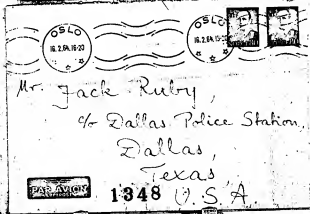 OSLO
16.2.64.16-20
OSLO
16.2.64.15-20
Mr. Jack Ruby,
c/o Dallas Police Station,
Dallas,
Texas
U.S.A.
PAR AVION
1348